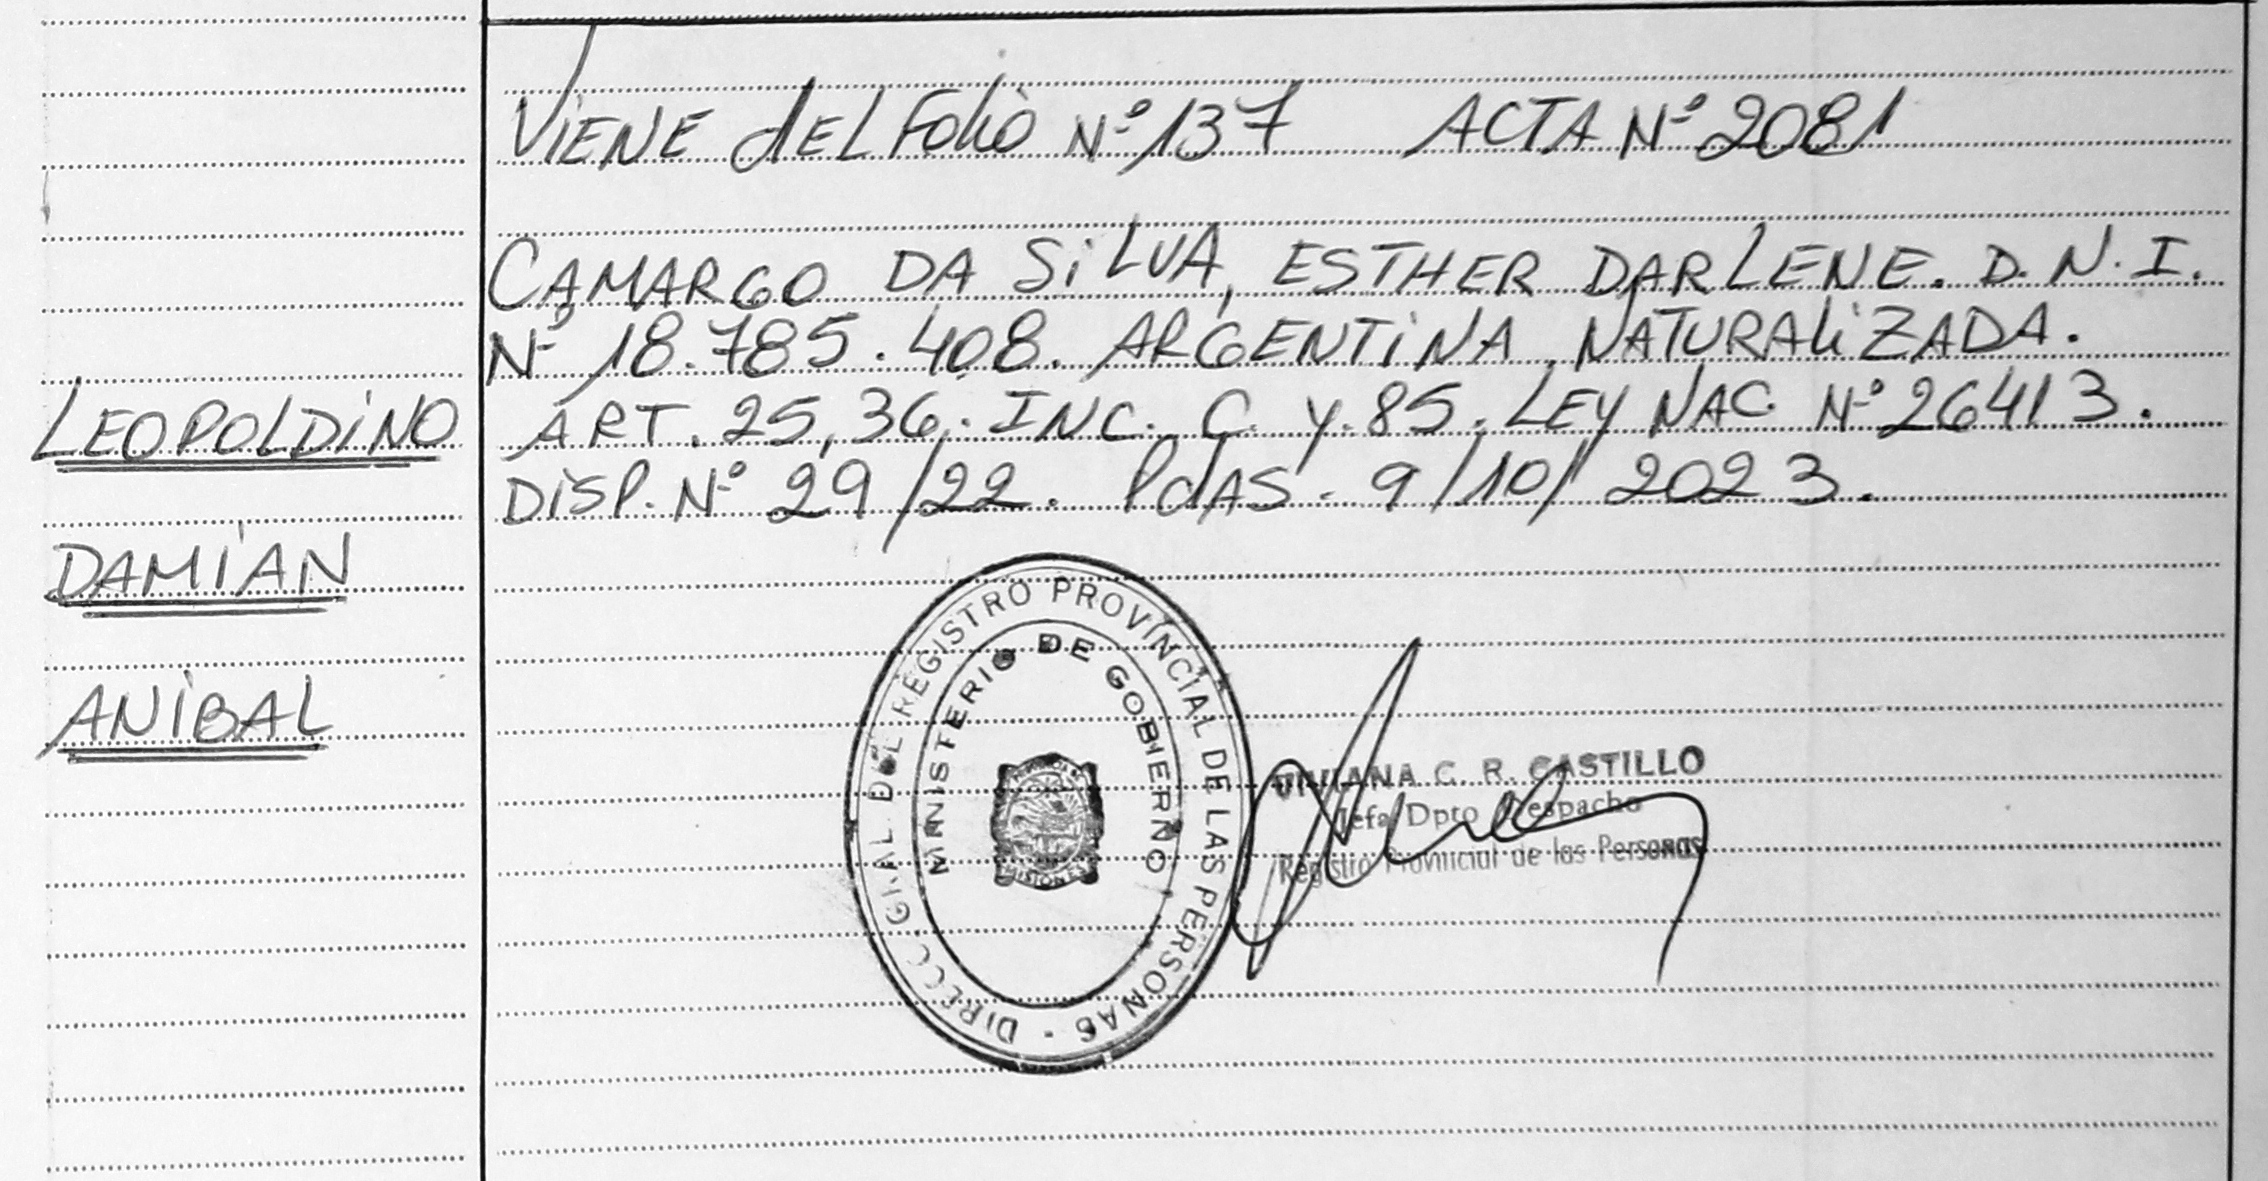 Viene del Folio Nº 137 ACTA Nº 2081
CAMARGO DA SiLVA, ESTHER DARLENE. D.N.I.
Nº 18.785.408. ARGENTiNA NATURALiZADA.
LEOPOLDiNO
ART. 25, 36. INC. C. y. 85. LEY NAC Nº 26413.
DiSP. Nº 29/22. PdAS. 9/10/2023.
DAMiAN
ANiBAL
DIRECC. GRAL DEL REGISTRO PROVINCIAL DE LAS PERSONAS -
MINISTERIO DE GOBIERNO
MISIONES
VIVIANA C. R. CASTILLO
Jefa Dpto Despacho
Registro Provincial de las Personas